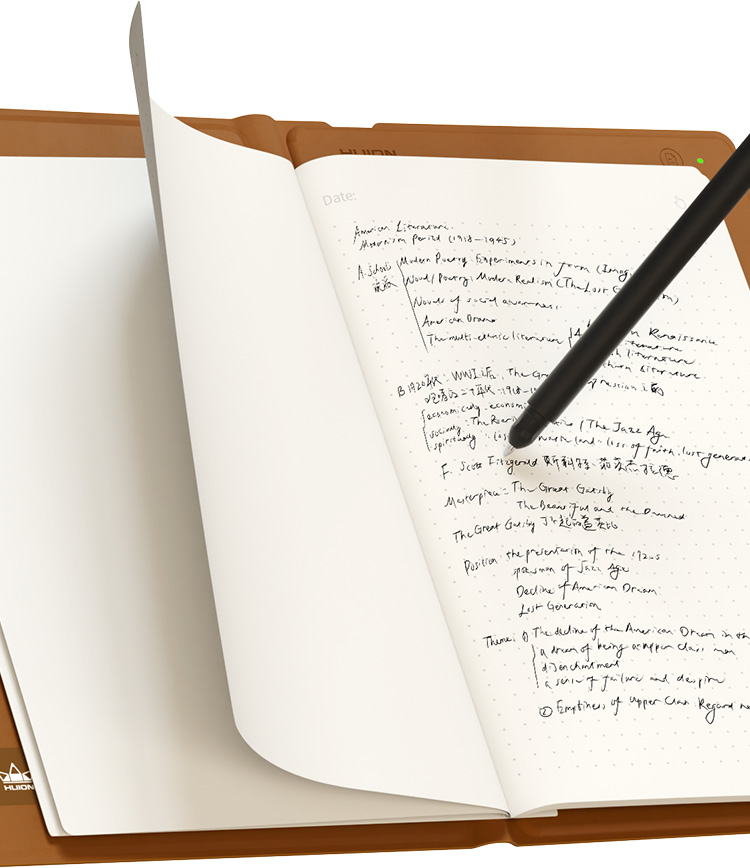 HUION
Date:
American Literature.
Modernism Period (1918-1945)
A. Schools Modern Poetry: Experiments in form (Imag
流派 Novel/Poetry: Modern Realism (The Lost G
Novels of social awareness.
American Drama
The multi-ethnic literature { Renaissance
literature
literature
literature
B. 1920 WWI The Gr ression
1918-19
economically: econom
socially: The Roarin / The Jazz Age
spiritually: land: loss of faith. lost generat
F. Scott Fitzgerald 斯科特·菲茨杰拉德
Masterpiece: The Great Gatsby
The Beautiful and the Damned
The Great Gatsby 了不起的盖茨比
Position: the presentation of the 1920s
spokesman of Jazz Age
Decline of American Dream
Lost Generation
Theme: ① The decline of the American Dream in th
a dream of being an upper class man
disenchantment
a sense of failure and despire
② Emptiness of Upper Class Regard
HUION